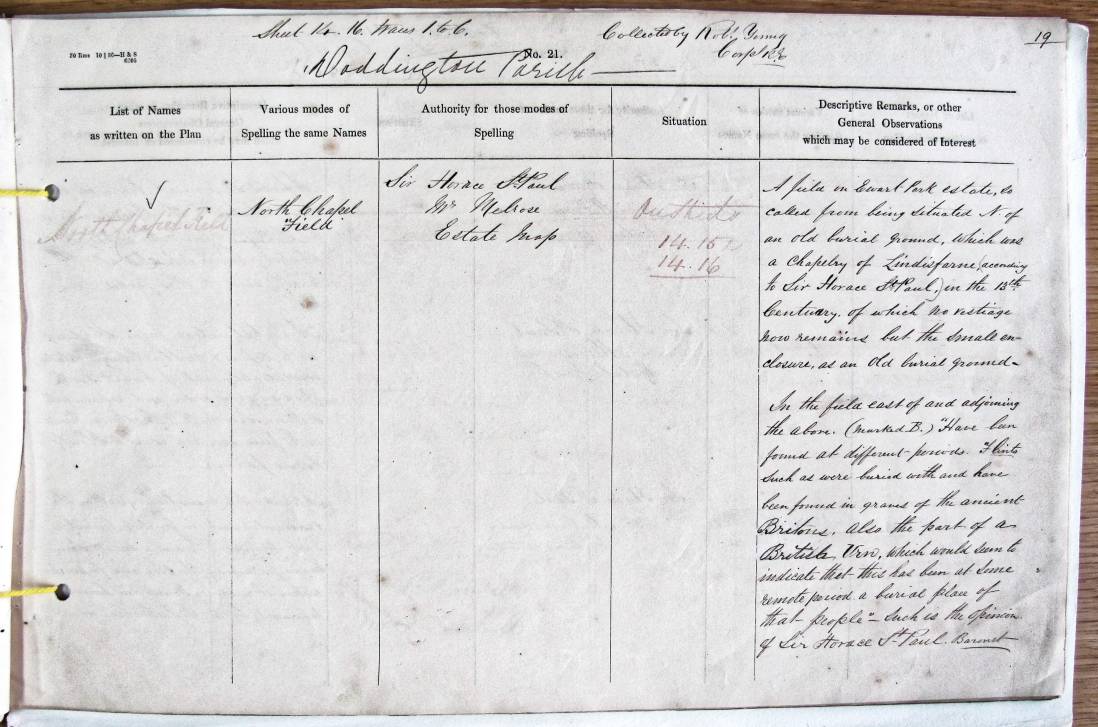 Sheet 14. 16. traces 1. to 6.
Collected by Robt. Young
Corpl R.E
19
20 Rms 10 | 56—H & S
6305
No. 21.
Doddington Parish
List of Names
as written on the Plan
Various modes of
Spelling the same Names
Authority for those modes of
Spelling
Situation
Descriptive Remarks, or other
General Observations
which may be considered of Interest
North Chapel Field
North Chapel
Field
Sir Horace St. Paul
Mr Melrose
Estate Map
14. 15
14. 16
A field on Ewart Park estate, so
called from being situated N. of
an old burial ground, which was
a Chapelry of Lindisfarne (according
to Sir Horace St. Paul,) in the 13th
Century, of which no vestiage
now remains but the small en-
closure, as an old burial ground-
In the field east of and adjoining
the above. (marked B.) "Have been
found at different periods. Flints
such as were buried with and have
been found in graves of the ancient
Britons, also the part of a
British Urn, which would seem to
indicate that this has been at some
remote period a burial place of
that people"- such is the opinion
of Sir Horace St. Paul. Baronet